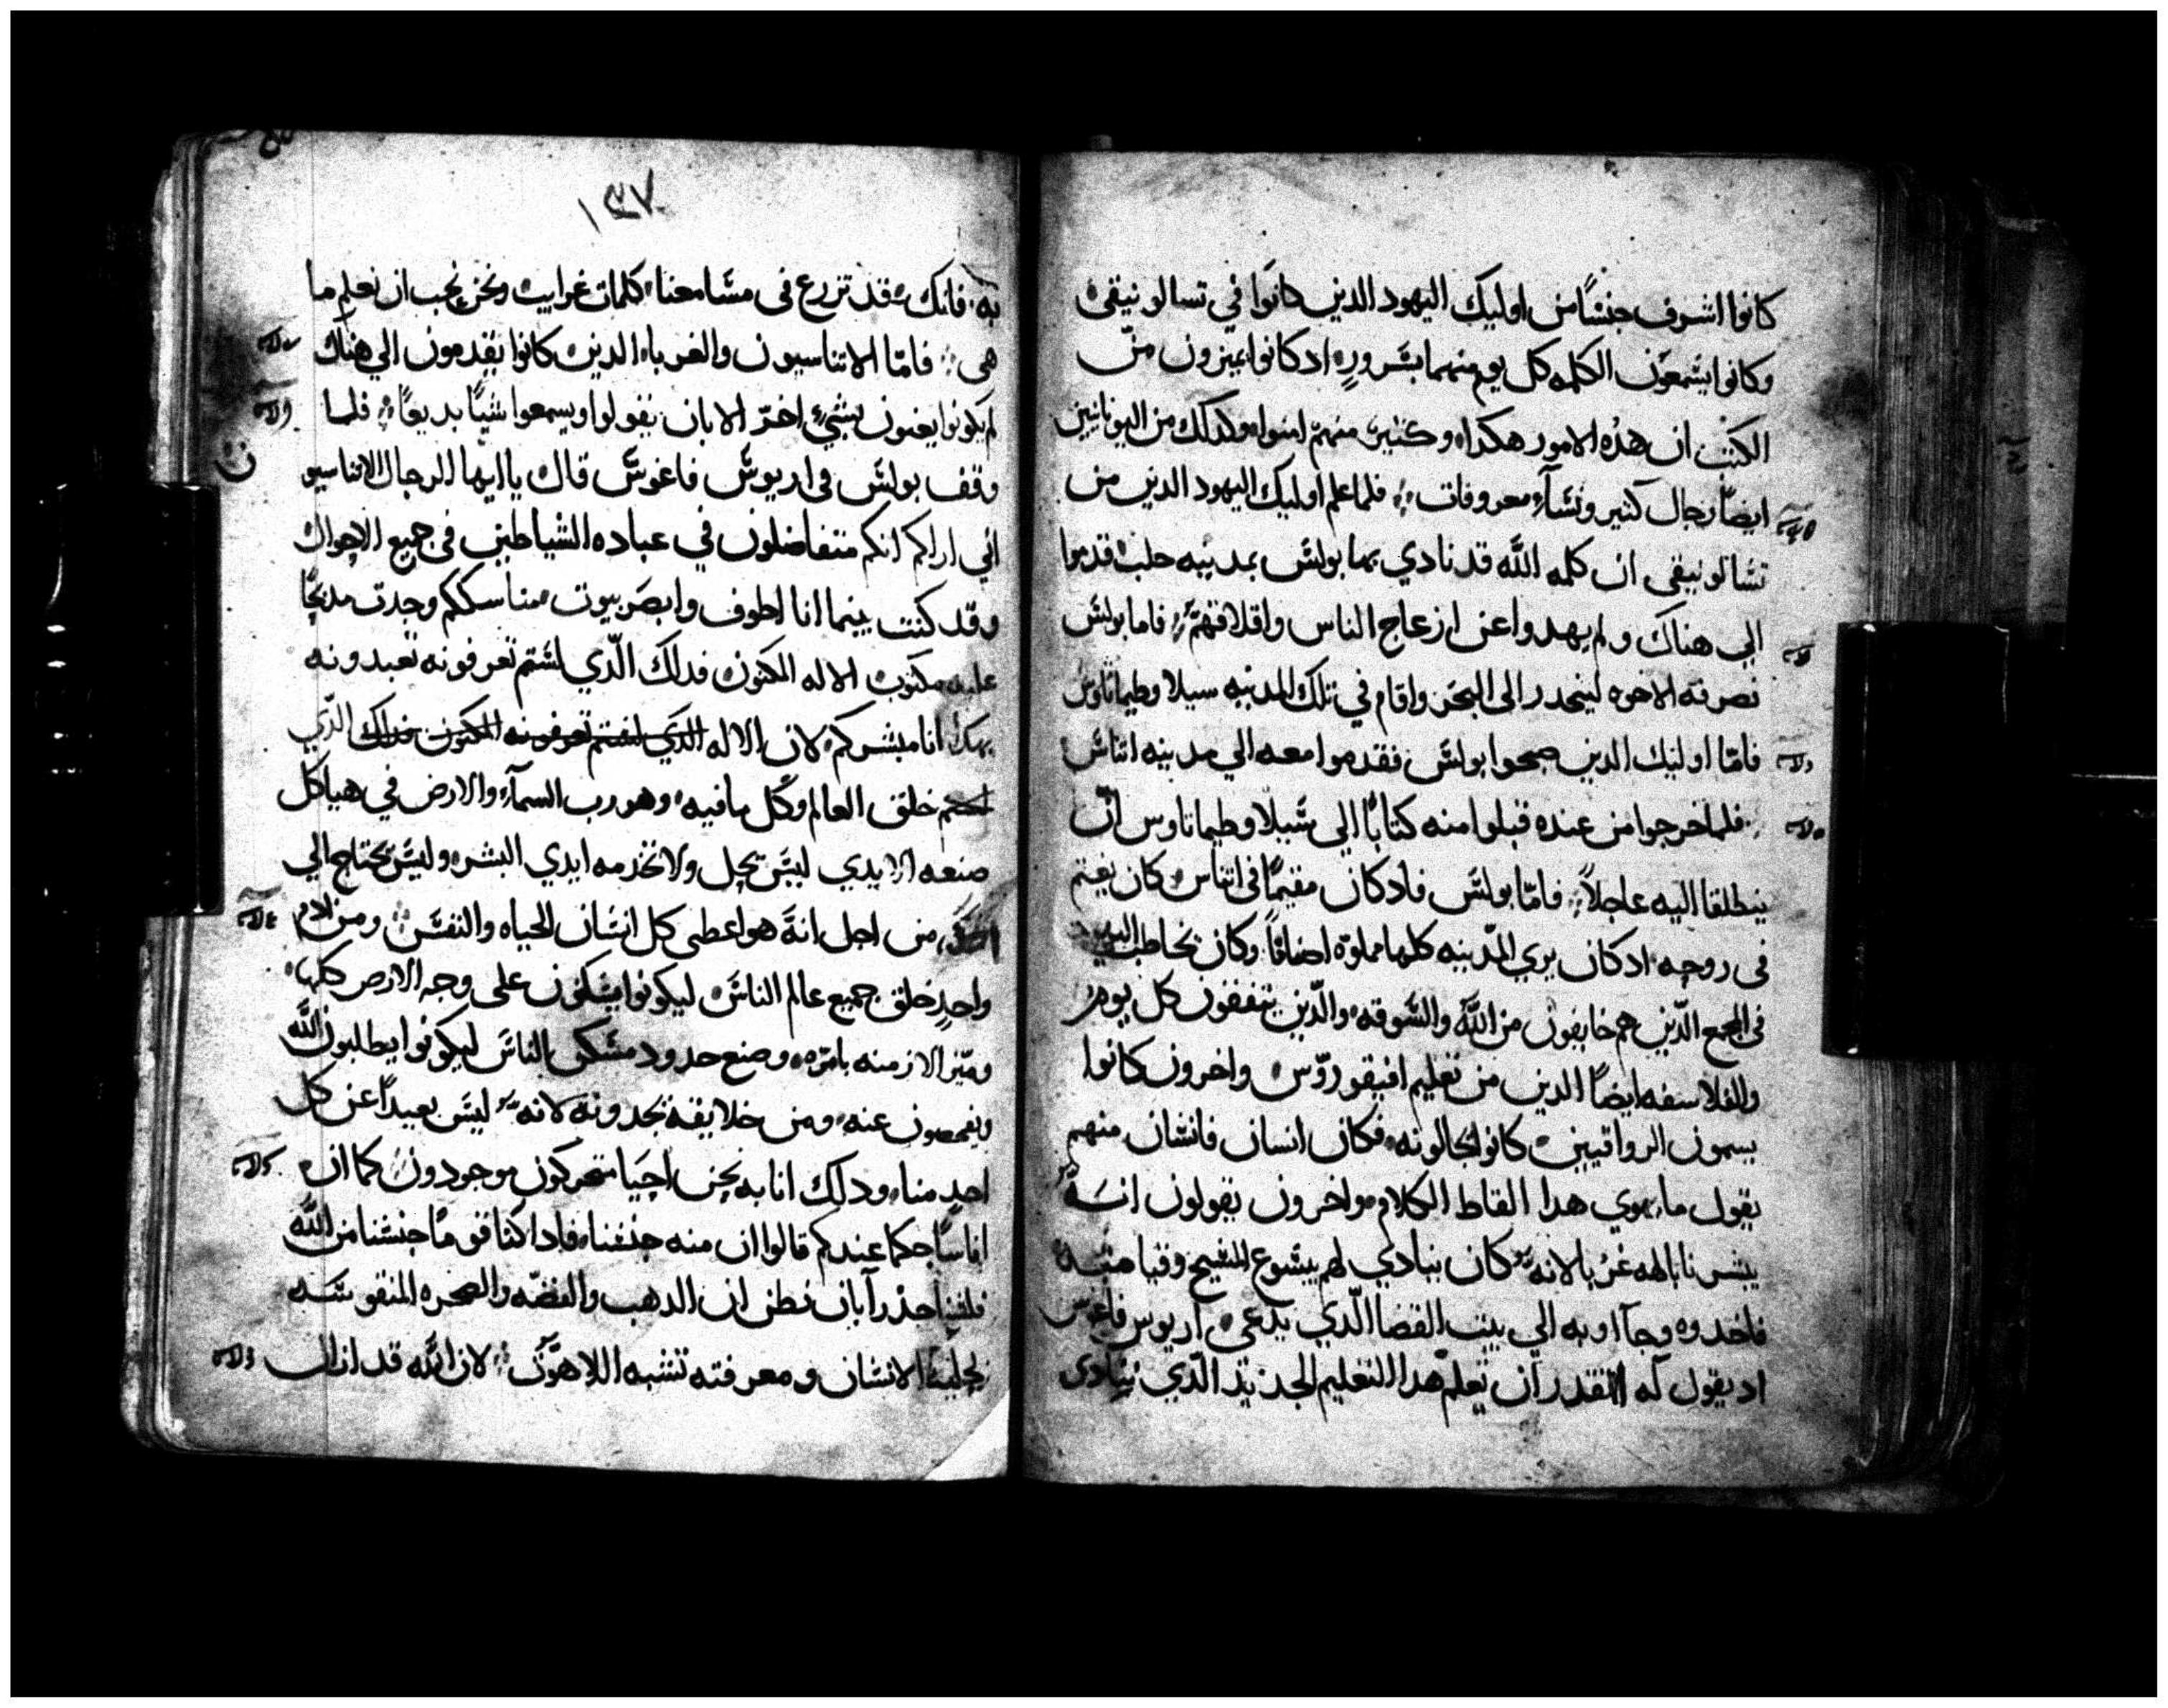 كانوا اشرف جنسًا من اوليك اليهود الدين كانوا في تسالونيقى
وكانوا يسمعون الكلمه كل يوم منهما بسرور اد كانوا يميزون من
الكتب ان هذه الامور هكدا وكثير منهم امنوا وكدلك من اليونانيين
ايضًا رجال كثير ونسآء معروفات فلما علم اوليك اليهود الدين من
تسالونيقى ان كلمه الله قد نادي بها بولس بمدينه حلب قدموا
الى هناك ولم يهدوا عن ازعاج الناس واقلاقهم فاما بولس
فصرفته الاخوه لينحدر الى البحر واقام في تلك المدينه سيلا وطيماتاوس
فامّا اوليك الدين صحبوا بولس فقدموا معه الي مدينه اتناس
فلما خرجوا من عنده قبلوا منه كتابًا الي سيلا وطيماتاوس ان
ينطلقا اليه عاجلاً فامّا بولس فادكان مقيمًا في اتناس كان يغتم
في روحه ادكان يري المدينه كلها مملوّه اصنامًا وكان يخاطب اليهود
في المجمع الّدين هم خايفون من الله والسوقه والّدين يتفقون كل يوم
والفلاسفه ايضًا الدين من تعليم افيقوروّس واخرون كانوا
يسمون الرواقيين كانوا يجادلونه فكان انسان فانسان منهم
يقول ما يهوي هدا القاط الكلام واخرون يقولون انه
يبشرنا بالهه غربا لانه كان ينادي لهم بيسوع المسيح وقيامته
فاخدوه وجآاوبه الي بيت القضا الّدي يدعى اريوس فاغوس
اد يقول له انقدر ان نعلم هدا التعليم الجديد الّدي تنادى
١٣٧
به فانك قد تزرع في مسامعنا كلمات غرايبيه ونحن نحب ان نعلم ما
هى فامّا الاتناسيون والغرباء الدين كانوا يقدمون الي هناك
لم يكونوا يعنون بشيء اخر الا بان يقولوا ويسمعوا شيئًا بديعًا فلما
وقف بولس في اريوس فاغوس قال يا ايها الرجال الاتناسيو
ن
اني اراكم انكم متفاضلون في عباده الشياطين في جميع الاحوال
وقد كنت بينما انا اطوف وابصر بيوت مناسككم وجدت مدبحًا
عليه مكتوب الاله المكنون فدلك الّدي لستم تعرفونه تعبدونه
بهدا انا مبشركم لان الاله الدي لستم تعرفونه المكنون فدلك الّدي
لستم خلق العالم وكل ما فيه وهو رب السمآء والارض في هياكل
صنعه الايدي ليس يحل ولا تخدمه ايدي البشر وليس يحتاج الي
احد من اجل انه هو اعطى كل انسان الحياه والنفس ومن دم
واحدٍ خلق جميع عالم الناس ليكونوا يسكنون على وجه الارض كلها
وميّز الازمنه بامره وصنع حدود مسكن الناس ليكونوا يطلبون الله
ويفحصون عنه ومن خلايقه يجدونه لانه ليس بعيداً عن كل
احدٍ منا ودلك انا به نحن احيا متحركون موجودون كما ان
اناسًا حكما عندكم قالوا ان منه جنسنا فادا كنا قومًا جنسنا من الله
فلسنا حدرآ بان نظن ان الدهب والفضّه والصخره المنقوشه
بحيله الانسان ومعرفته تشبه اللاهوت لان الله قد ازال